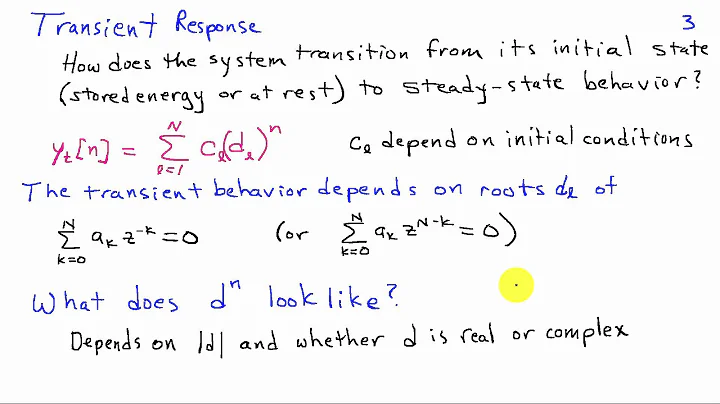 Transient Response
3
How does the system transition from its initial state
(stored energy or at rest) to steady-state behavior?
y_t[n] = \sum_{ℓ=1}^{N} c_ℓ(d_ℓ)^n
c_ℓ depend on initial conditions
The transient behavior depends on roots d_ℓ of
\sum_{k=0}^{N} a_k z^{-k} = 0 (or \sum_{k=0}^{N} a_k z^{N-k} = 0)
What does d^n look like?
Depends on |d| and whether d is real or complex